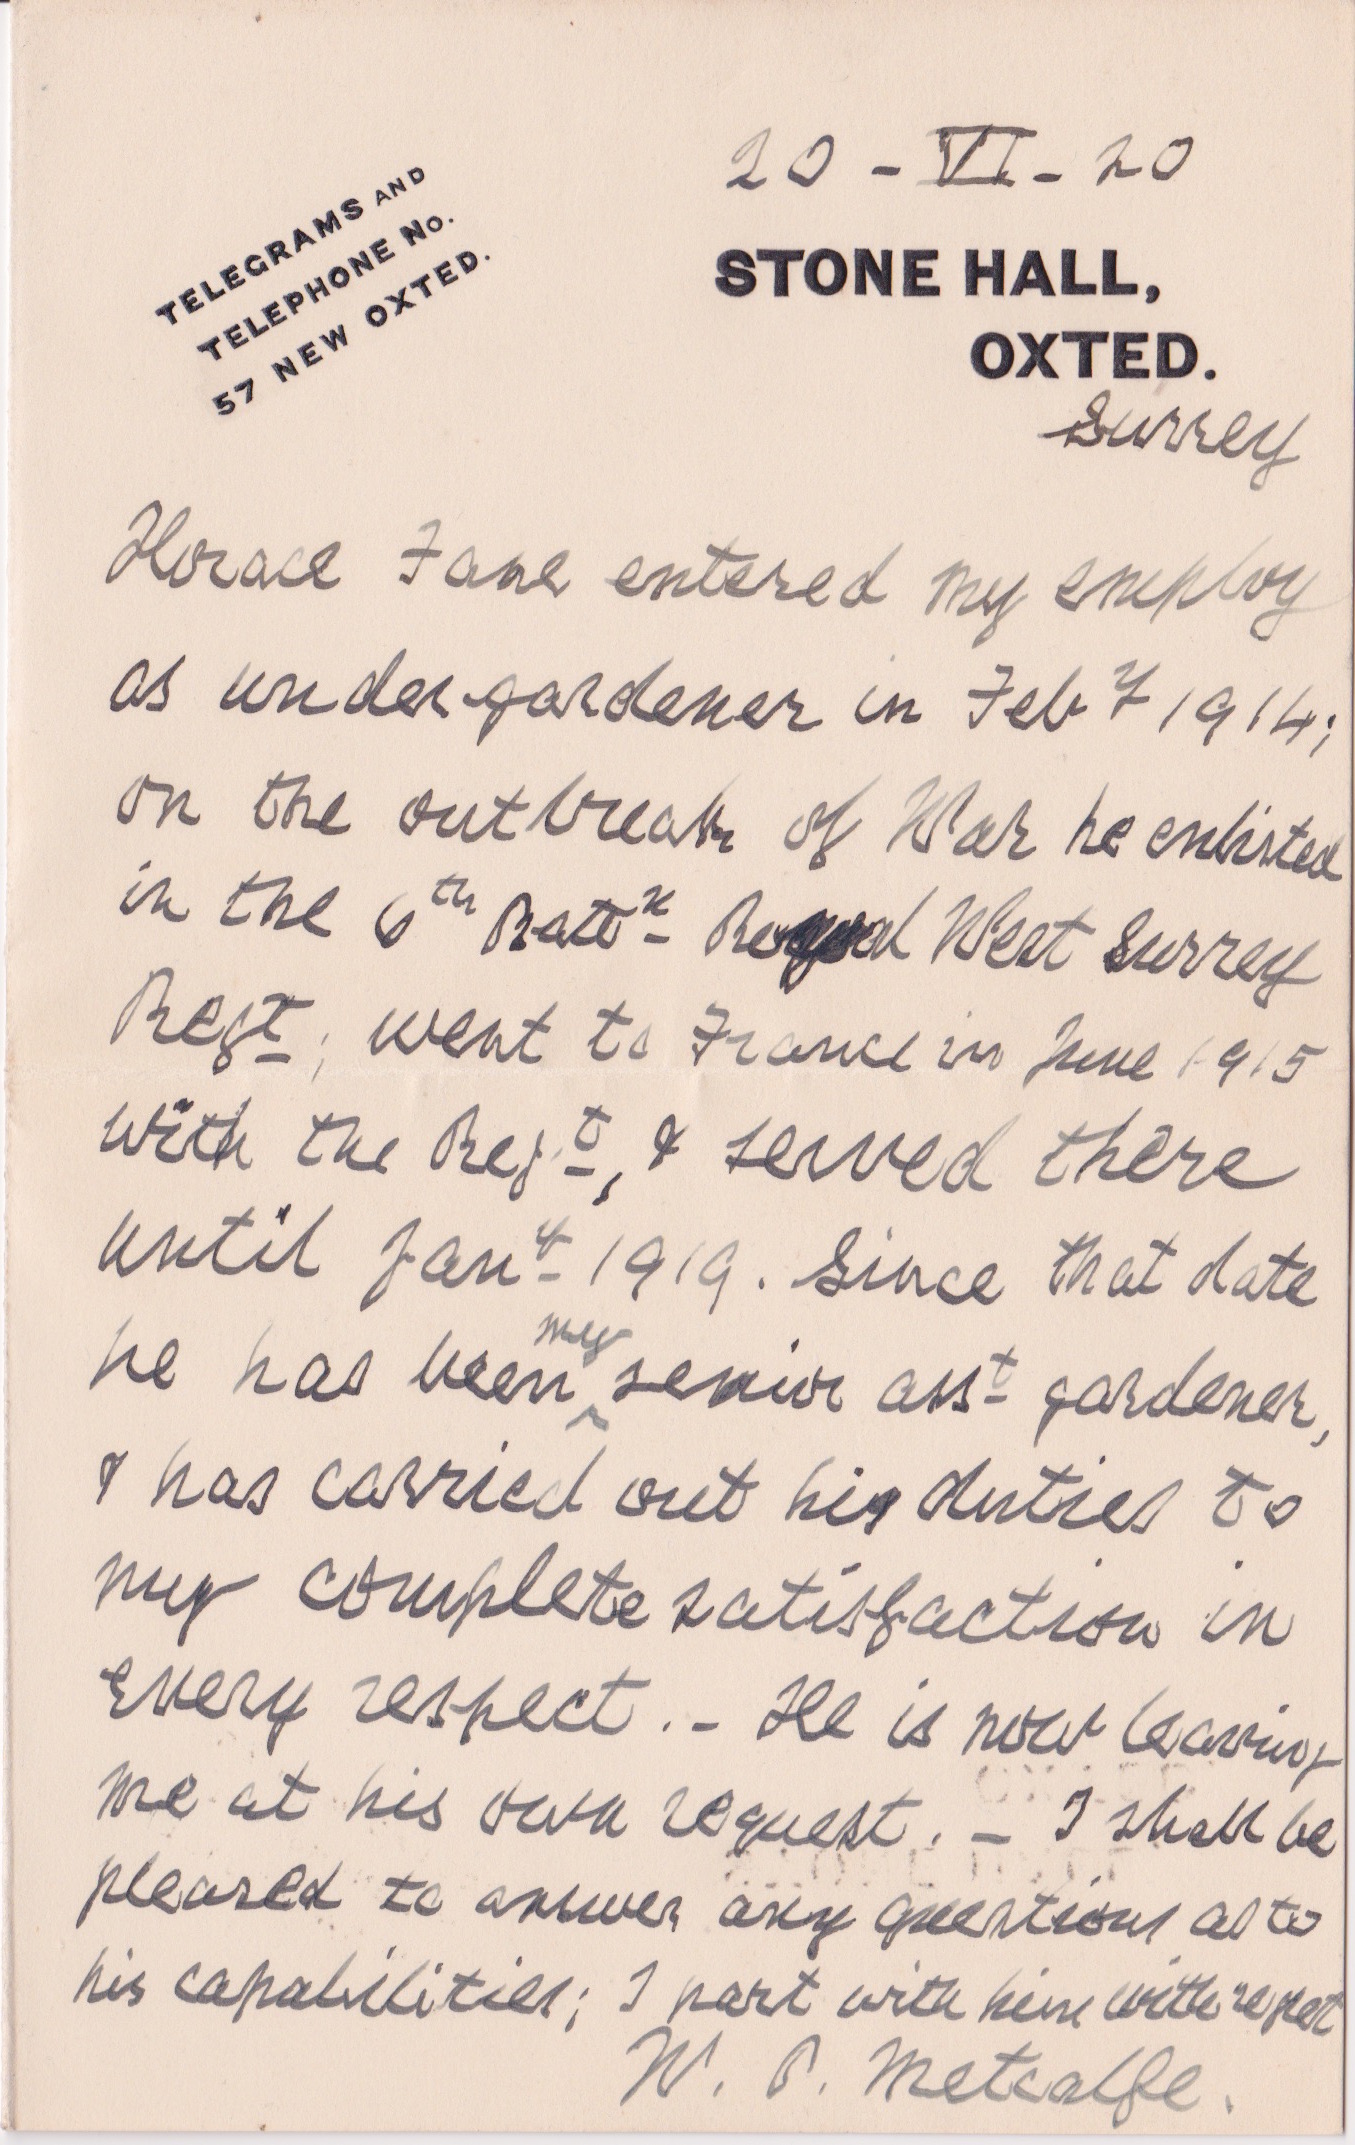 20 - VI - 20
TELEGRAMS AND
TELEPHONE No.
57 NEW OXTED.
STONE HALL,
OXTED.
Surrey
Horace Fane entered my employ
as under-gardener in Feby 1914;
on the outbreak of War he enlisted
in the 6th Battn Royal West Surrey
Regt; went to France in June 1915
with the Regt, & served there
until Jany 1919. Since that date
he has been my senior asst gardener,
& has carried out his duties to
my complete satisfaction in
every respect. - He is now leaving
me at his own request. - I shall be
pleased to answer any questions as to
his capabilities; I part with him with regret
W. P. Metcalfe.